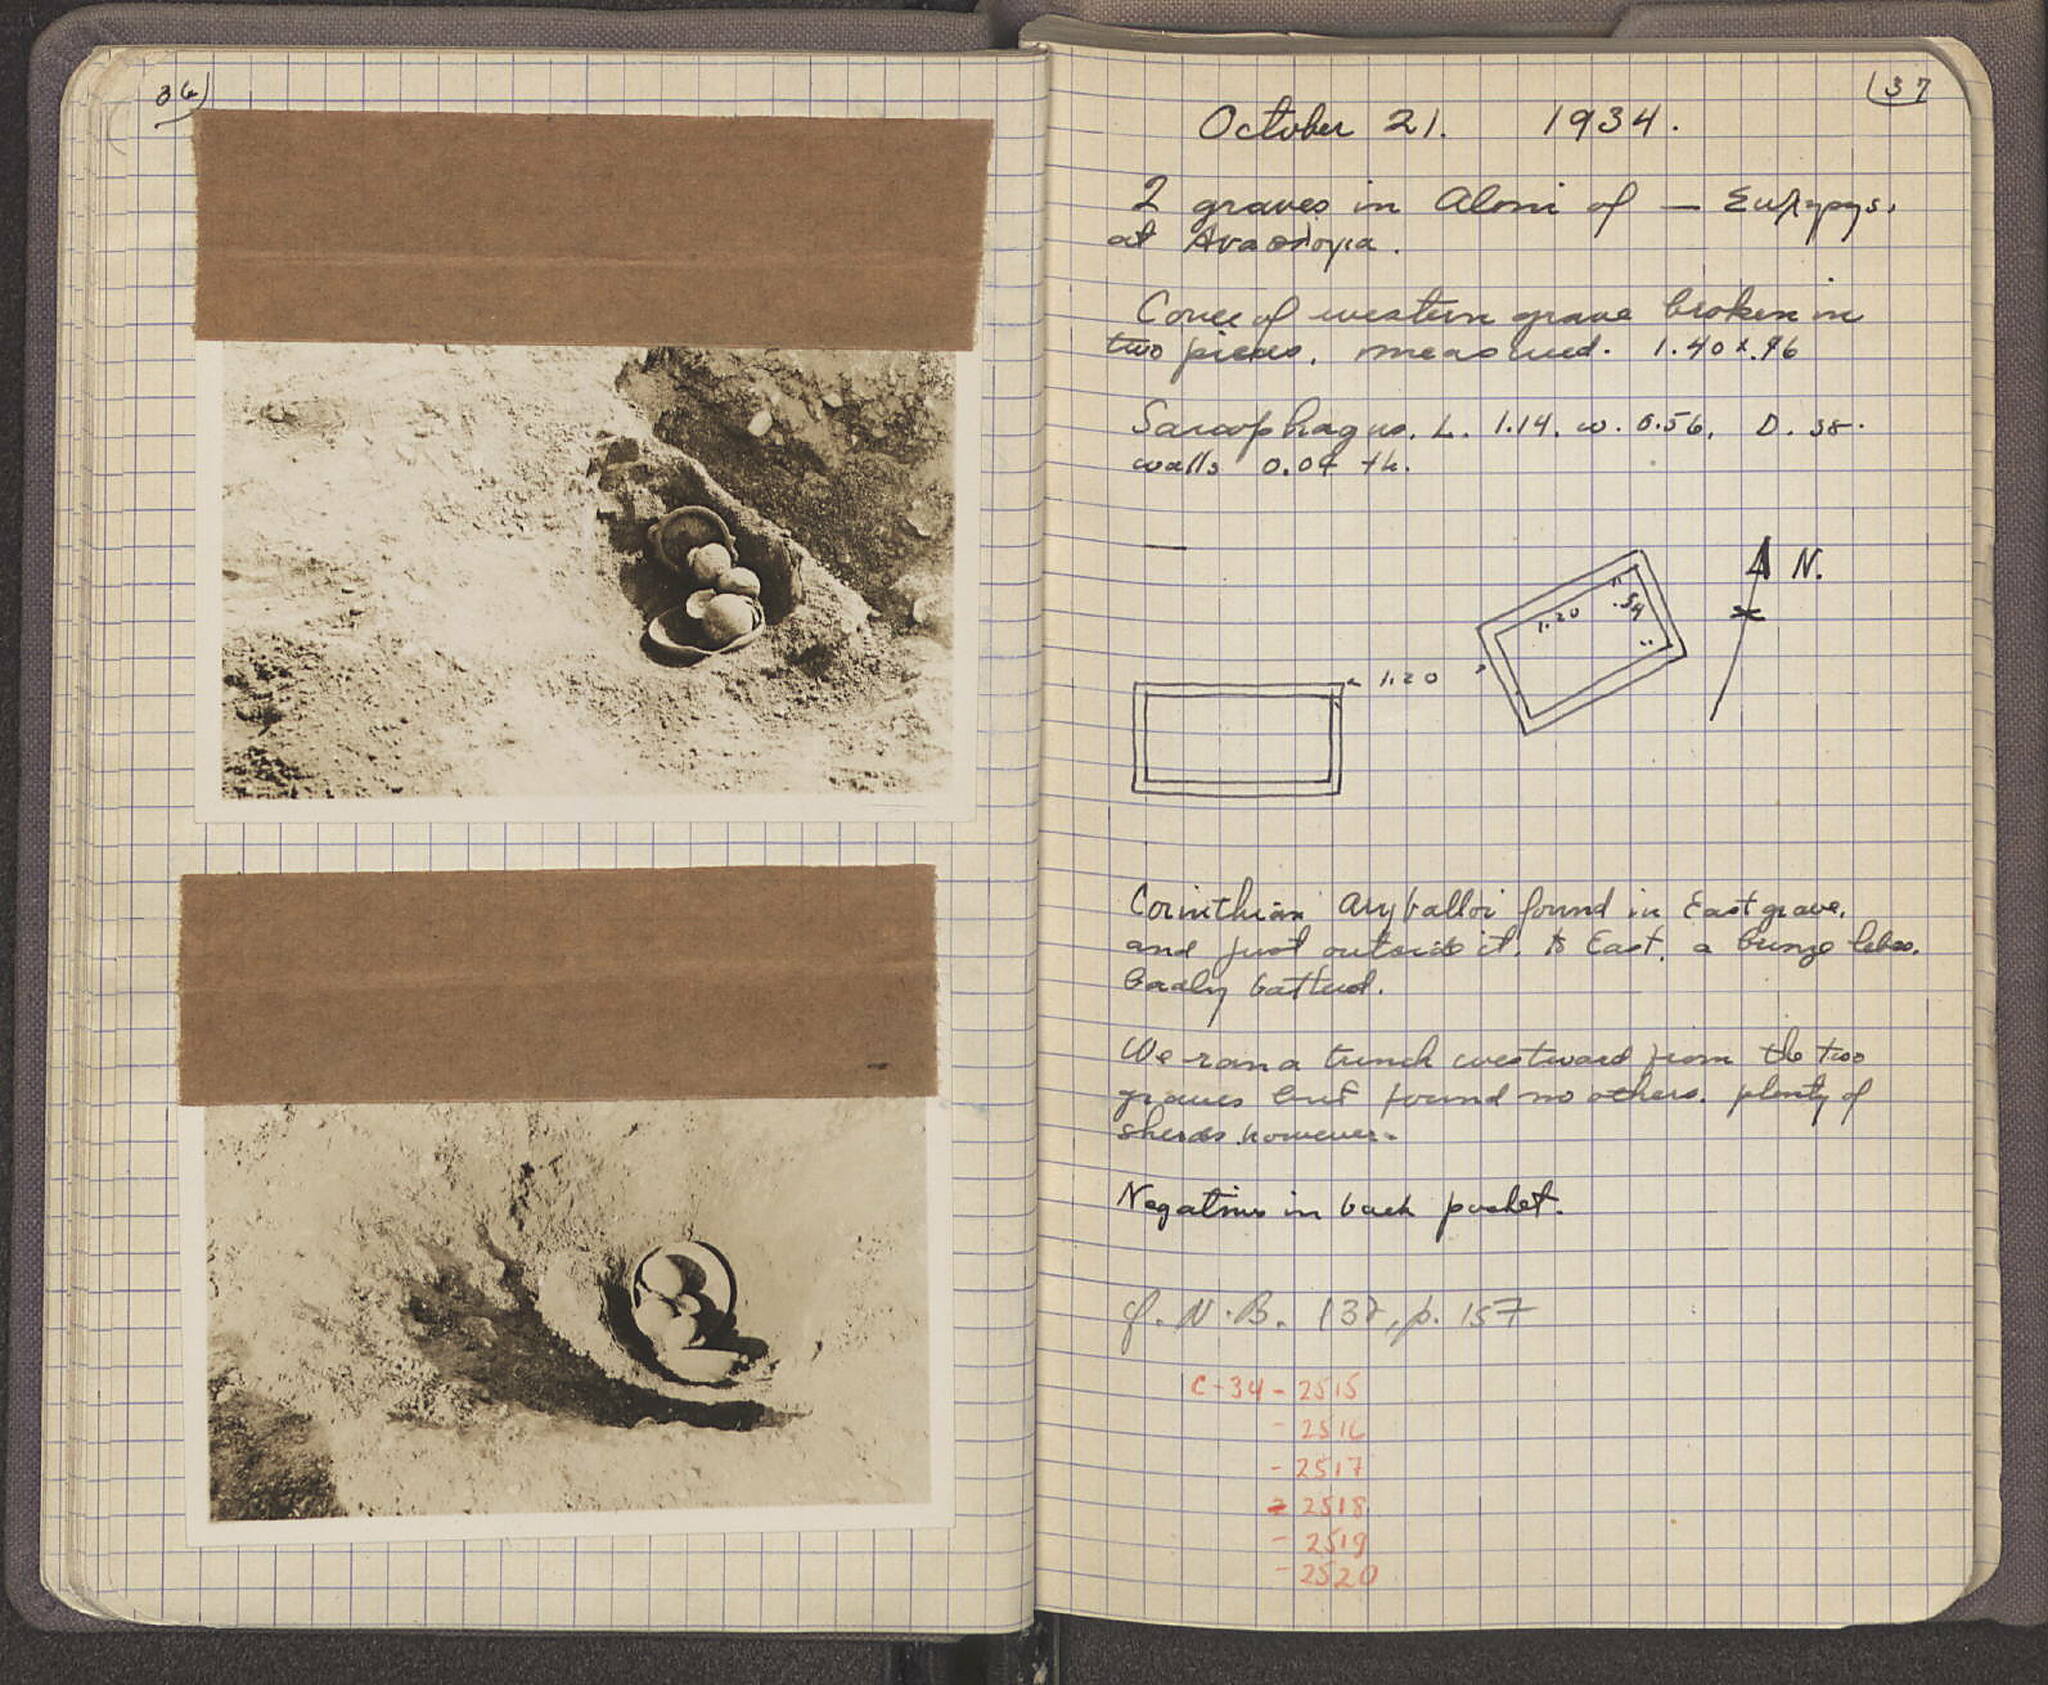 36)
(37
October 21. 1934.
2 graves in Aloni of —
at Αναπλογια.
Cover of western grave broken in
two pieces, measured. 1.40 x .96
Sarcophagus. L. 1.14. w. 0.56. D. 38.
walls 0.04 th.
N.
1.20
.54
1.20
Corinthian Aryballoi found in East grave,
and just outside it, to East, a bronze lebes.
badly battered.
We ran a trench westward from the two
graves but found no others. plenty of
sherds however.
Negatives in back pocket.
cf. N.B. 137, p. 157
C-34-2515
-2516
-2517
-2518
-2519
-2520